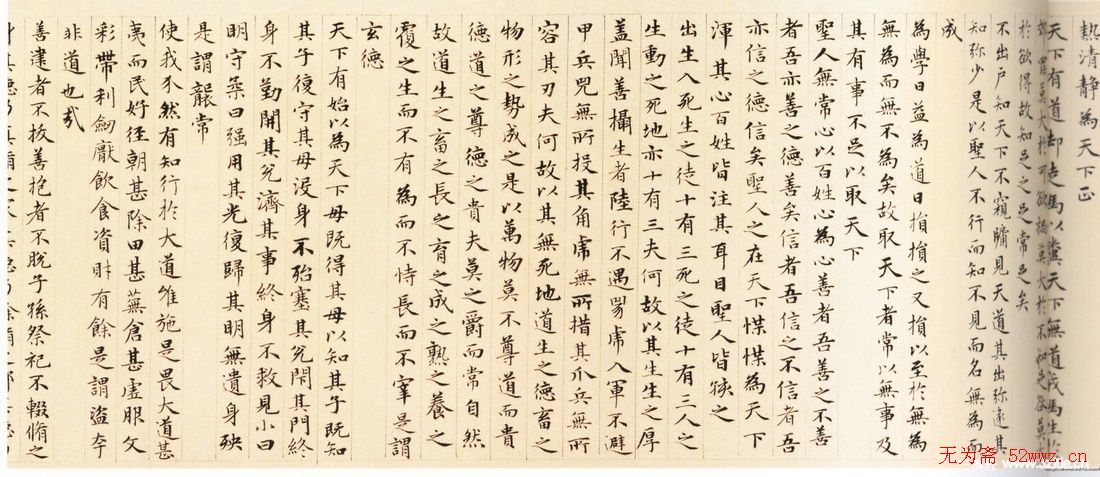 熱清靜為天下正
天下有道却走馬以糞天下無道戎馬生於
郊罪莫大於可欲禍莫大於不知足咎莫大
於欲得故知足之足常足矣
不出戶知天下不窺牖見天道其出弥遠其
知弥少是以聖人不行而知不見而名無為而
成
為學日益為道日損損之又損以至於無為
無為而無不為矣故取天下者常以無事及
其有事不足以取天下
聖人無常心以百姓心為心善者吾善之不善
者吾亦善之德善矣信者吾信之不信者吾
亦信之德信矣聖人之在天下惵惵為天下
渾其心百姓皆注其耳目聖人皆孩之
出生入死生之徒十有三死之徒十有三人之
生動之死地亦十有三夫何故以其生生之厚
盖聞善攝生者陸行不遇兕虎入軍不避
甲兵兕無所投其角虎無所措其爪兵無所
容其刃夫何故以其無死地道生之德畜之
物形之勢成之是以萬物莫不尊道而貴
德道之尊德之貴夫莫之爵而常自然
故道生之畜之長之育之成之熟之養之
覆之生而不有為而不恃長而不宰是謂
玄德
天下有始以為天下母既得其母以知其子既知
其子復守其母没身不殆塞其兌閇其門終
身不勤開其兌濟其事終身不救見小曰
明守柔曰强用其光復歸其明無遺身殃
是謂襲常
使我介然有知行於大道唯施是畏大道甚
夷而民好徑朝甚除田甚蕪倉甚虛服文
彩帶利劎厭飲食資財有餘是謂盗夸
非道也哉
善建者不拔善抱者不脫子孫祭祀不輟脩之
无为斋 52wwz.cn